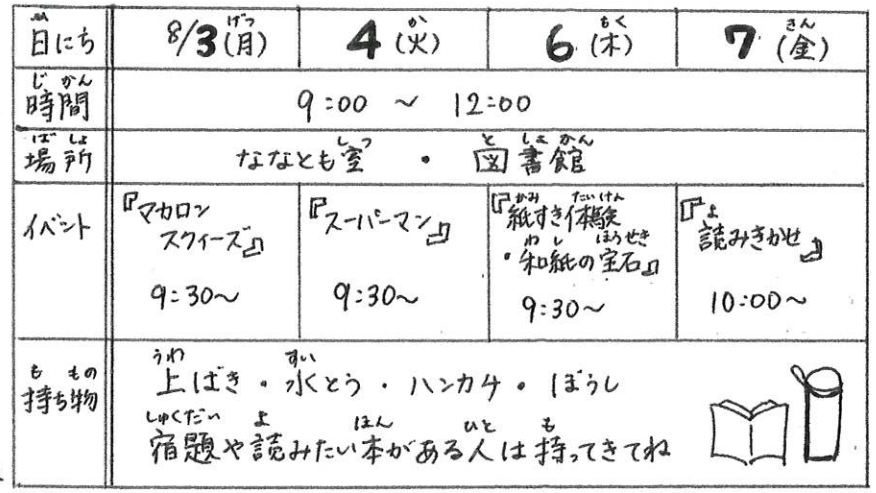 日にち 8/3(月) 4(火) 6(木) 7(金)
時間 9:00 ～ 12:00
場所 ななとも室 ・ 図書館
イベント
『マカロン
スクィーズ』
9:30～
『スーパーマン』
9:30～
『紙すき体験
・和紙の宝石』
9:30～
『読みきかせ』
10:00～
持ち物
上ばき・水とう・ハンカチ・ぼうし
宿題や読みたい本がある人は持ってきてね